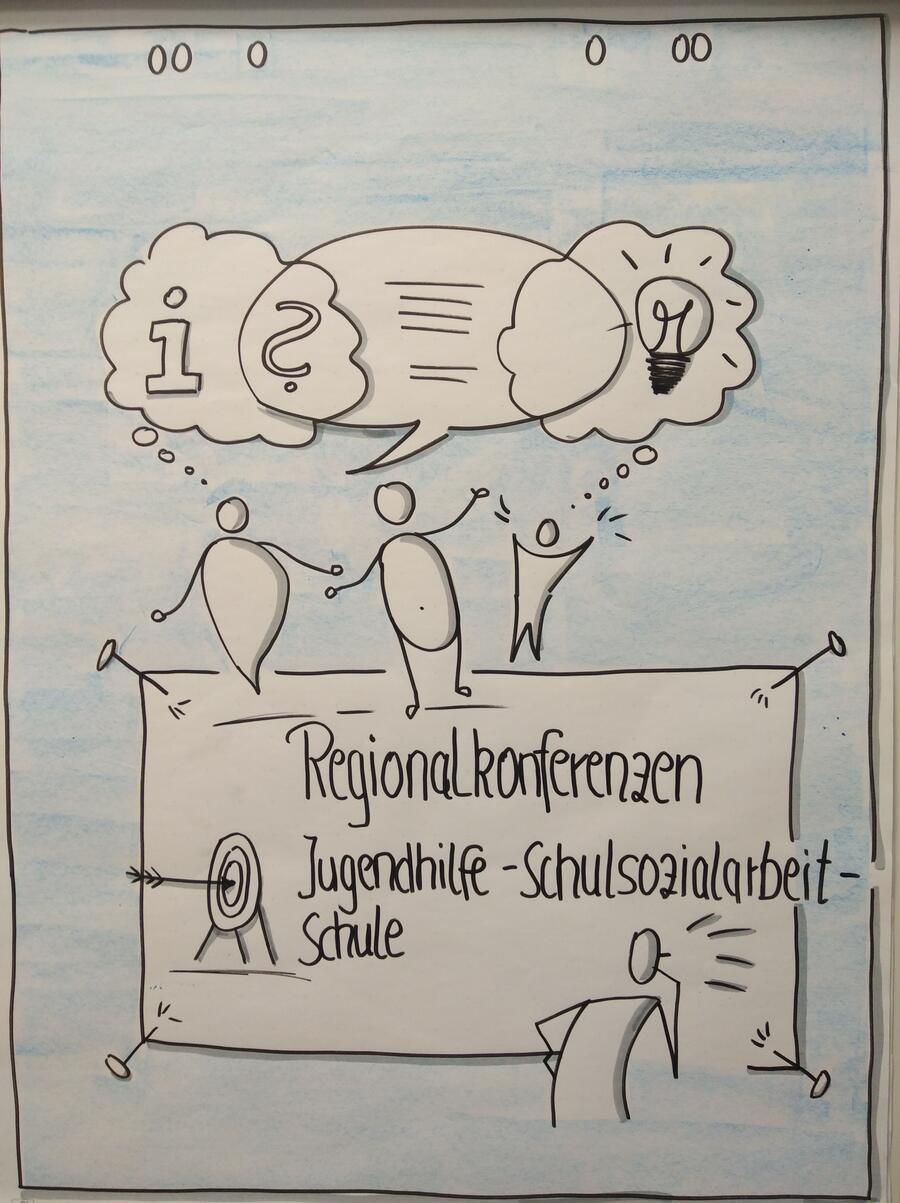 i ?
Regionalkonferenzen
Jugendhilfe - Schulsozialarbeit -
Schule